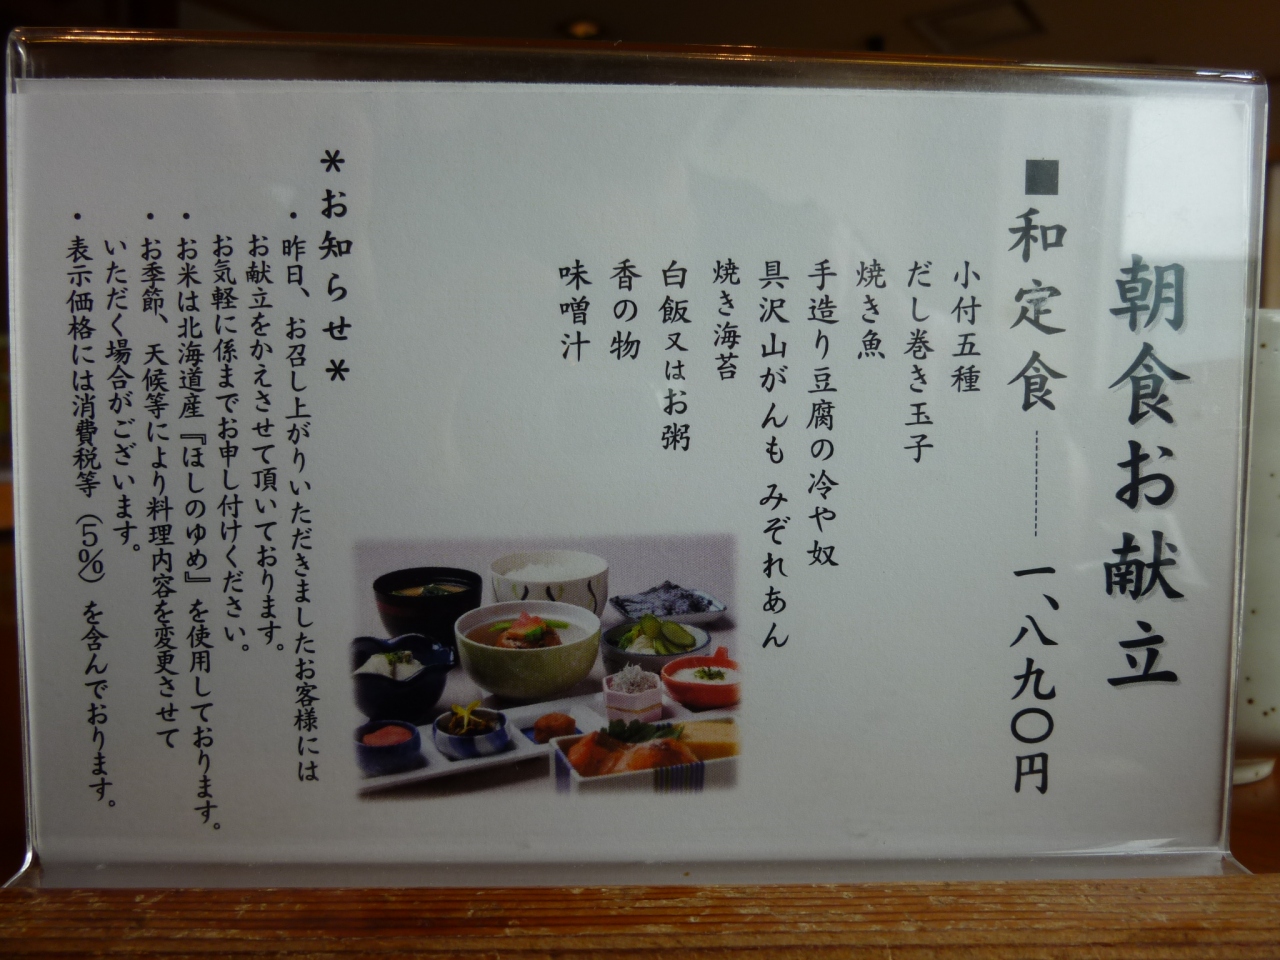 朝食お献立
■和定食 ---------- 一、八九〇円
小付五種
だし巻き玉子
焼き魚
手造り豆腐の冷や奴
具沢山がんも みぞれあん
焼き海苔
白飯又はお粥
香の物
味噌汁
＊お知らせ＊
・昨日、お召し上がりいただきましたお客様には
お献立をかえさせて頂いております。
お気軽に係までお申し付けください。
・お米は北海道産『ほしのゆめ』を使用しております。
・お季節、天候等により料理内容を変更させて
いただく場合がございます。
・表示価格には消費税等（5％）を含んでおります。